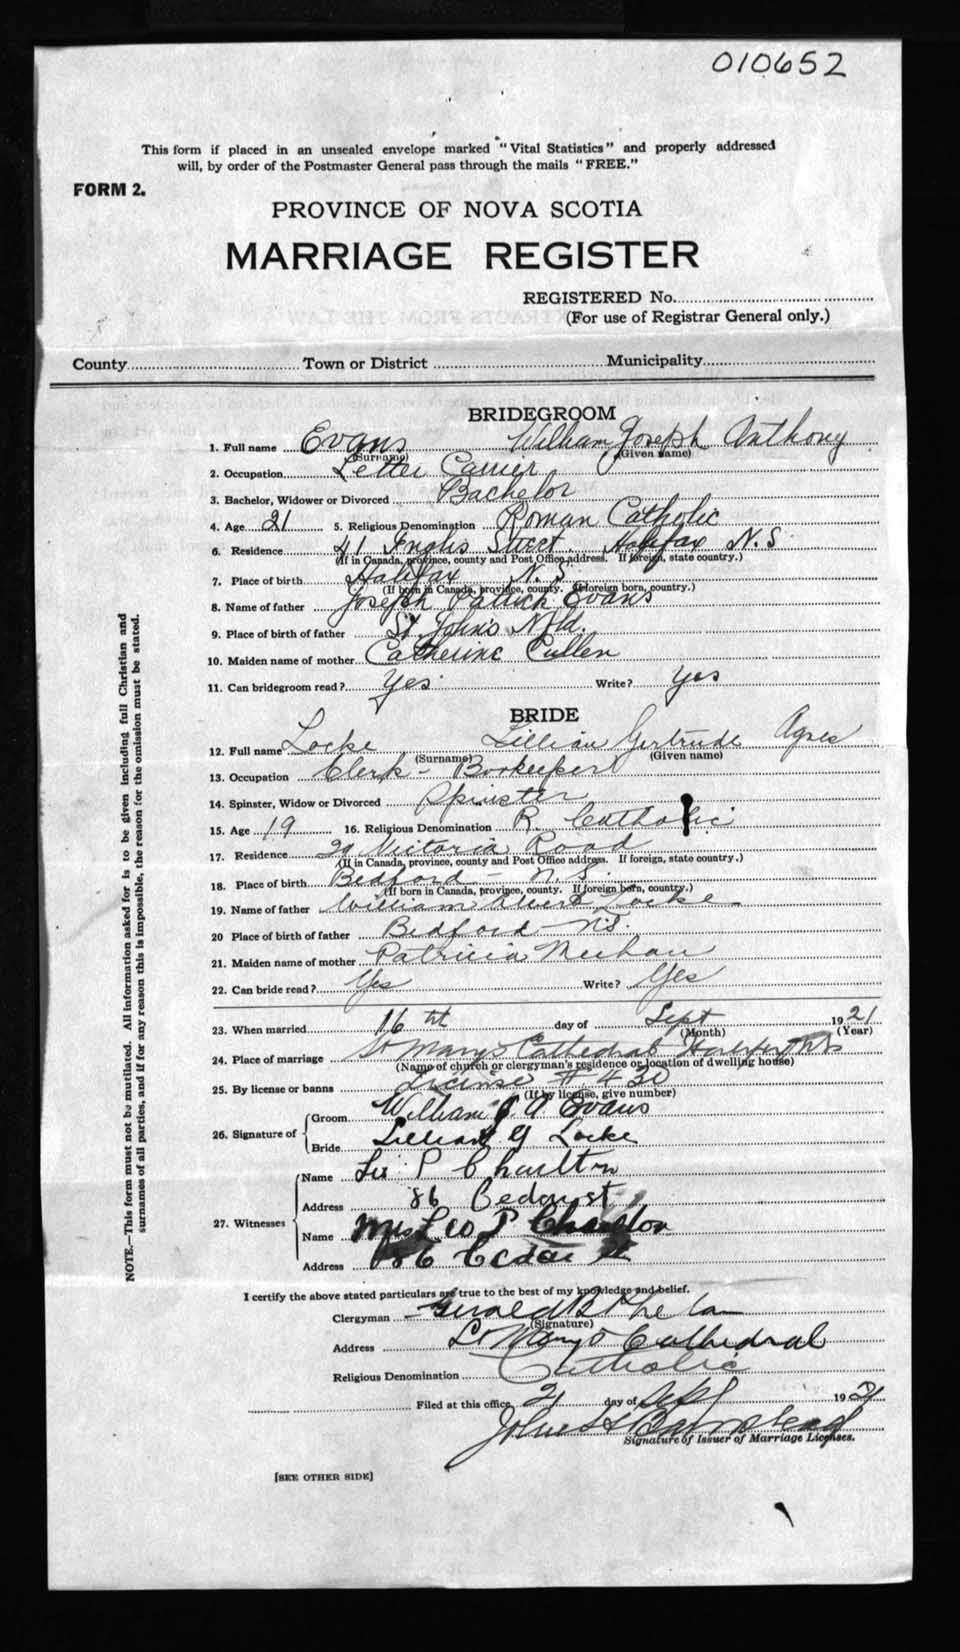 010652
This form if placed in an unsealed envelope marked "Vital Statistics" and properly addressed
will, by order of the Postmaster General pass through the mails "FREE."
FORM 2.
PROVINCE OF NOVA SCOTIA
MARRIAGE REGISTER
REGISTERED No.
(For use of Registrar General only.)
County Town or District Municipality
BRIDEGROOM
1. Full name Evans William Joseph Anthony
(Surname) (Given name)
2. Occupation Letter Carrier
3. Bachelor, Widower or Divorced Bachelor
4. Age 21 5. Religious Denomination Roman Catholic
6. Residence 41 Inglis Street Halifax N.S.
(If in Canada, province, county and Post Office address. If foreign, state country.)
7. Place of birth Halifax N.S.
(If born in Canada, province, county. If foreign born, country.)
8. Name of father Joseph Patrick Evans
9. Place of birth of father St John's Nfld.
10. Maiden name of mother Catherine Cullen
11. Can bridegroom read? Yes Write? Yes
BRIDE
12. Full name Locke Lillian Gertrude Agnes
(Surname) (Given name)
13. Occupation Clerk - Bookeeper
14. Spinster, Widow or Divorced Spinster
15. Age 19 16. Religious Denomination R. Catholic
17. Residence 29 Victoria Road
(If in Canada, province, county and Post Office address. If foreign, state country.)
18. Place of birth Bedford - N.S.
(If born in Canada, province, county. If foreign born, country.)
19. Name of father William Albert Locke
20 Place of birth of father Bedford N.S.
21. Maiden name of mother Patricia Meehan
22. Can bride read? Yes Write? Yes
23. When married 16th day of Sept 1921
(Month) (Year)
24. Place of marriage St Marys Cathedral Halifax N.S.
(Name of church or clergyman's residence or location of dwelling house)
25. By license or banns License # 430
(If by license, give number)
26. Signature of Groom William J A Evans
Bride Lillian G Locke
27. Witnesses Name Leo P Charlton
Address 86
Name Mrs Leo P Charlton
Address 86 Cedar St
I certify the above stated particulars are true to the best of my knowledge and belief.
Clergyman Gerald B Phelan
(Signature)
Address St Mary's Cathedral
Religious Denomination Catholic
Filed at this office 21 day of Sept 1921
Signature of Issuer of Marriage Licenses.
[SEE OTHER SIDE]
NOTE.—This form must not be mutilated. All information asked for is to be given including full Christian and
surnames of all parties, and if for any reason this is impossible, the reason for the omission must be stated.